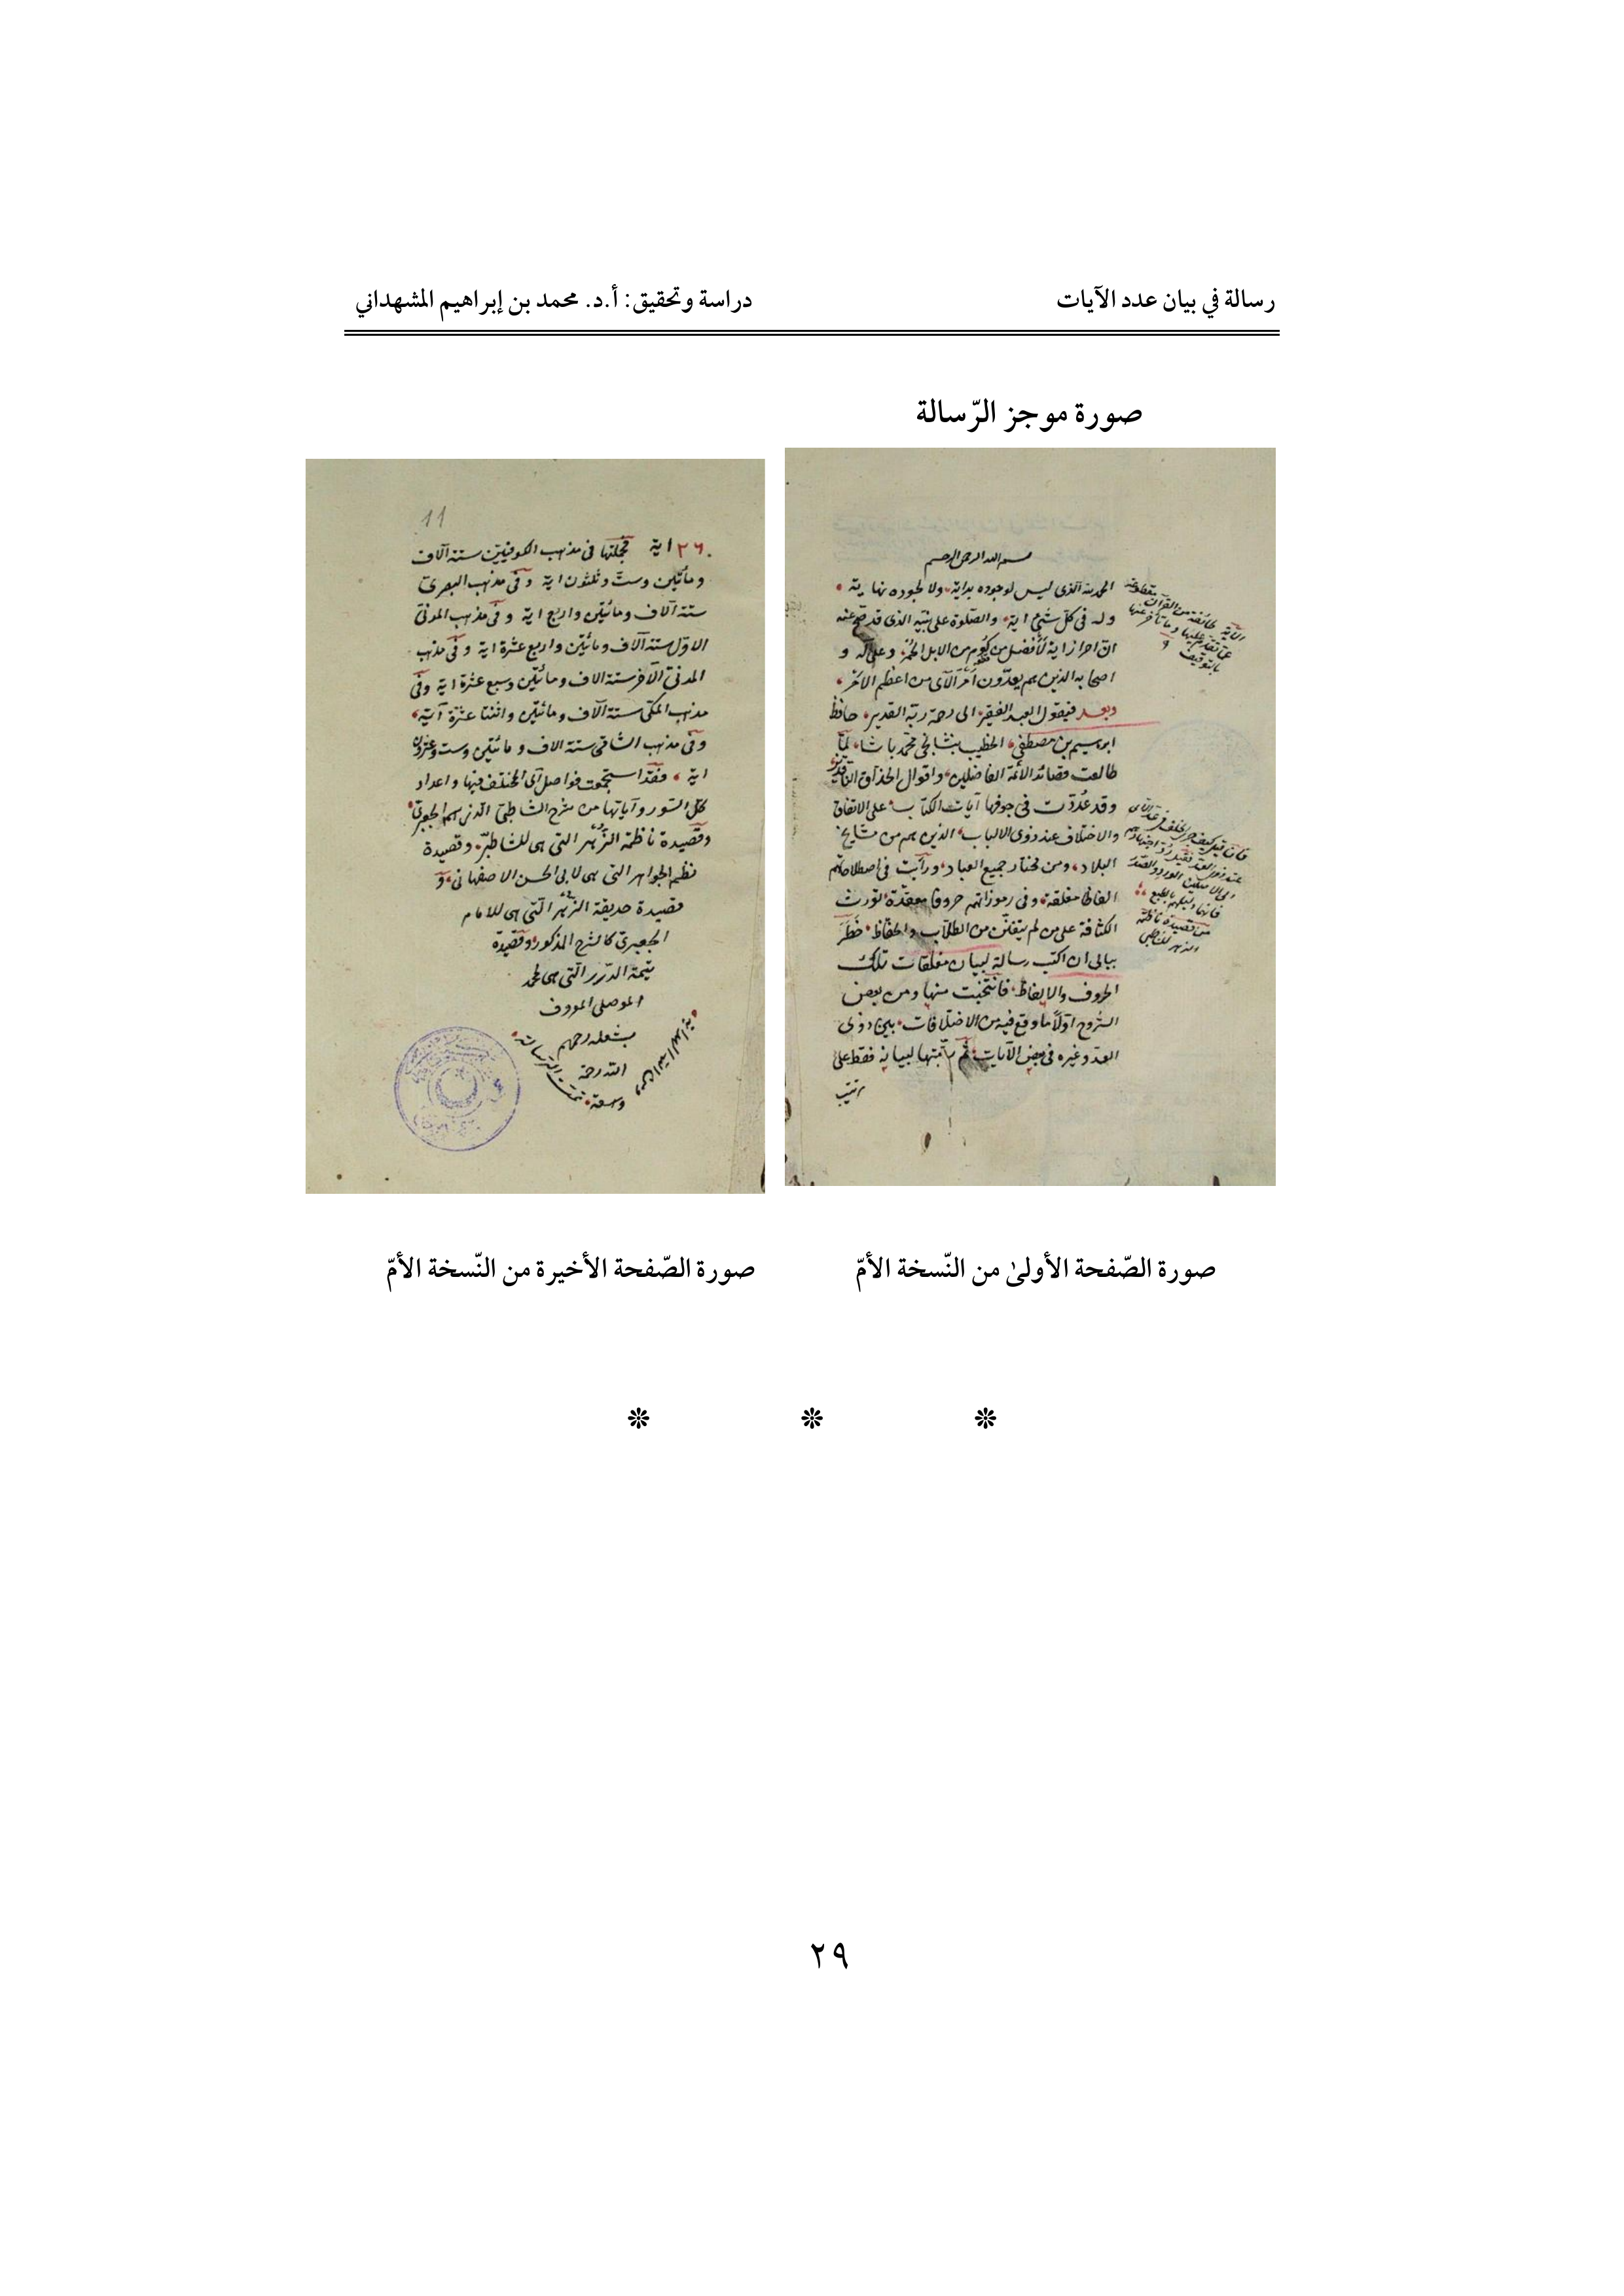 رسالة في بيان عدد الآيات
دراسة وتحقيق: أ.د. محمد بن إبراهيم المشهداني
صورة موجز الرّسالة
بسم الله الرحمن الرحيم
الحمد لله الذى ليس لوجوده بداية ولا لجوده نهاية
وله فى كل شئ اية والصلوة على نبيه الذى قد صح عنه
ان احراز اية لأفضل من كُوم من الابل الحمر وعلى آله و
اصحابه الذين هم يعدّون أمر الآى من اعظم الامر
وبعد فيقول العبد الفقير الى رحمة ربه القدير حافظ
ابرهيم بن مصطفى الخطيب بنشانجى محمد باشا لما
طالعت قصائد الائمة الفاضلين واقوال الحذاق الناقدين
وقد عُدّت فى جوفها آيات الكتاب على الاتفاق
والاختلاف عند ذوى الالباب الذين هم من مشايخ
البلاد ومن مختار جميع العباد ورأيت فى اصطلاحاتهم
الفاظا مغلقة وفى رموزاتهم حروفا معقدة تورث
الكثافة على من لم يتفنن من الطلاب والحفاظ خطر
ببالى ان اكتب رسالة لبيان مغلقات تلك
الحروف والالفاظ فانتخبت منها ومن بعض
الشروح اوّلا ما وقع فيه من الاختلافات بين ذوى
العدد وغيره فى بعض الآيات ثم لبيانه فقط على
ترتيب
11
٢٦٠ اية فجملتها فى مذهب الكوفيين ستة آلاف
ومأتين وست وثلثون اية وفى مذهب البصرى
ستة آلاف ومأتين واربع اية وفى مذهب المدنى
الاول ستة آلاف ومأتين واربع عشرة اية وفى مذهب
المدنى الآخر ستة الاف ومأتين وسبع عشرة اية وفى
مذهب المكى ستة آلاف ومأتين واثنتا عشرة آية
وفى مذهب الشامى ستة الاف ومأتين وست وعشرون
اية فقد استجمعت فواصل آى المختلف فيها واعداد
كل السور وآياتها من شرح الشاطبى الذى هو الجعبرى
وقصيدة ناظمة الزهر التى هى للشاطبى وقصيدة
نظم الجواهر التى هى لابى الحسن الاصفهانى و
قصيدة حديقة الزهر التى هى للامام
الجعبرى كالشرح المذكور وقصيدة
يتيمة الدرر التى هى لمحمد
الموصلى المعروف
بشعله رحمهم
الله رحمة
وسعة تمت الرسالة
صورة الصّفحة الأولىٰ من النّسخة الأمّ
صورة الصّفحة الأخيرة من النّسخة الأمّ
٢٩